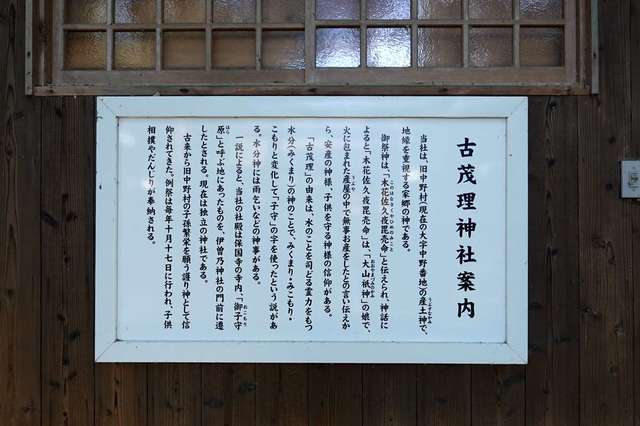 古茂理神社案内
当社は、旧中野村(現在の大字中野番地)の産土神で、
地縁を重視する家郷の神である。
御祭神は、「木花佐久夜毘売命」と伝えられ、神話に
よると「木花佐久夜毘売命」は、「大山祇神」の娘で、
火に包まれた産屋の中で無事お産をしたとの言い伝えか
ら、安産の神様、子供を守る神様の信仰がある。
「古茂理」の由来は、水のことを司どる霊力をもつ
水分(みくまり)の神のことで、みくまり・みこもり・
こもりと変化して「子守」の字を使ったという説があ
る。水分神には雨乞いなどの神事がある。
一説によると、当社の社殿は保国寺の寺内、「御子守
原」と呼ぶ地にあったものを、伊曽乃神社の門前に遷
したとされる。現在は独立の神社である。
古来から旧中野村の子孫繁栄を願う護り神として信
仰されてきた。例祭は毎年十月十七日に行われ、子供
相撲やだんじりが奉納される。